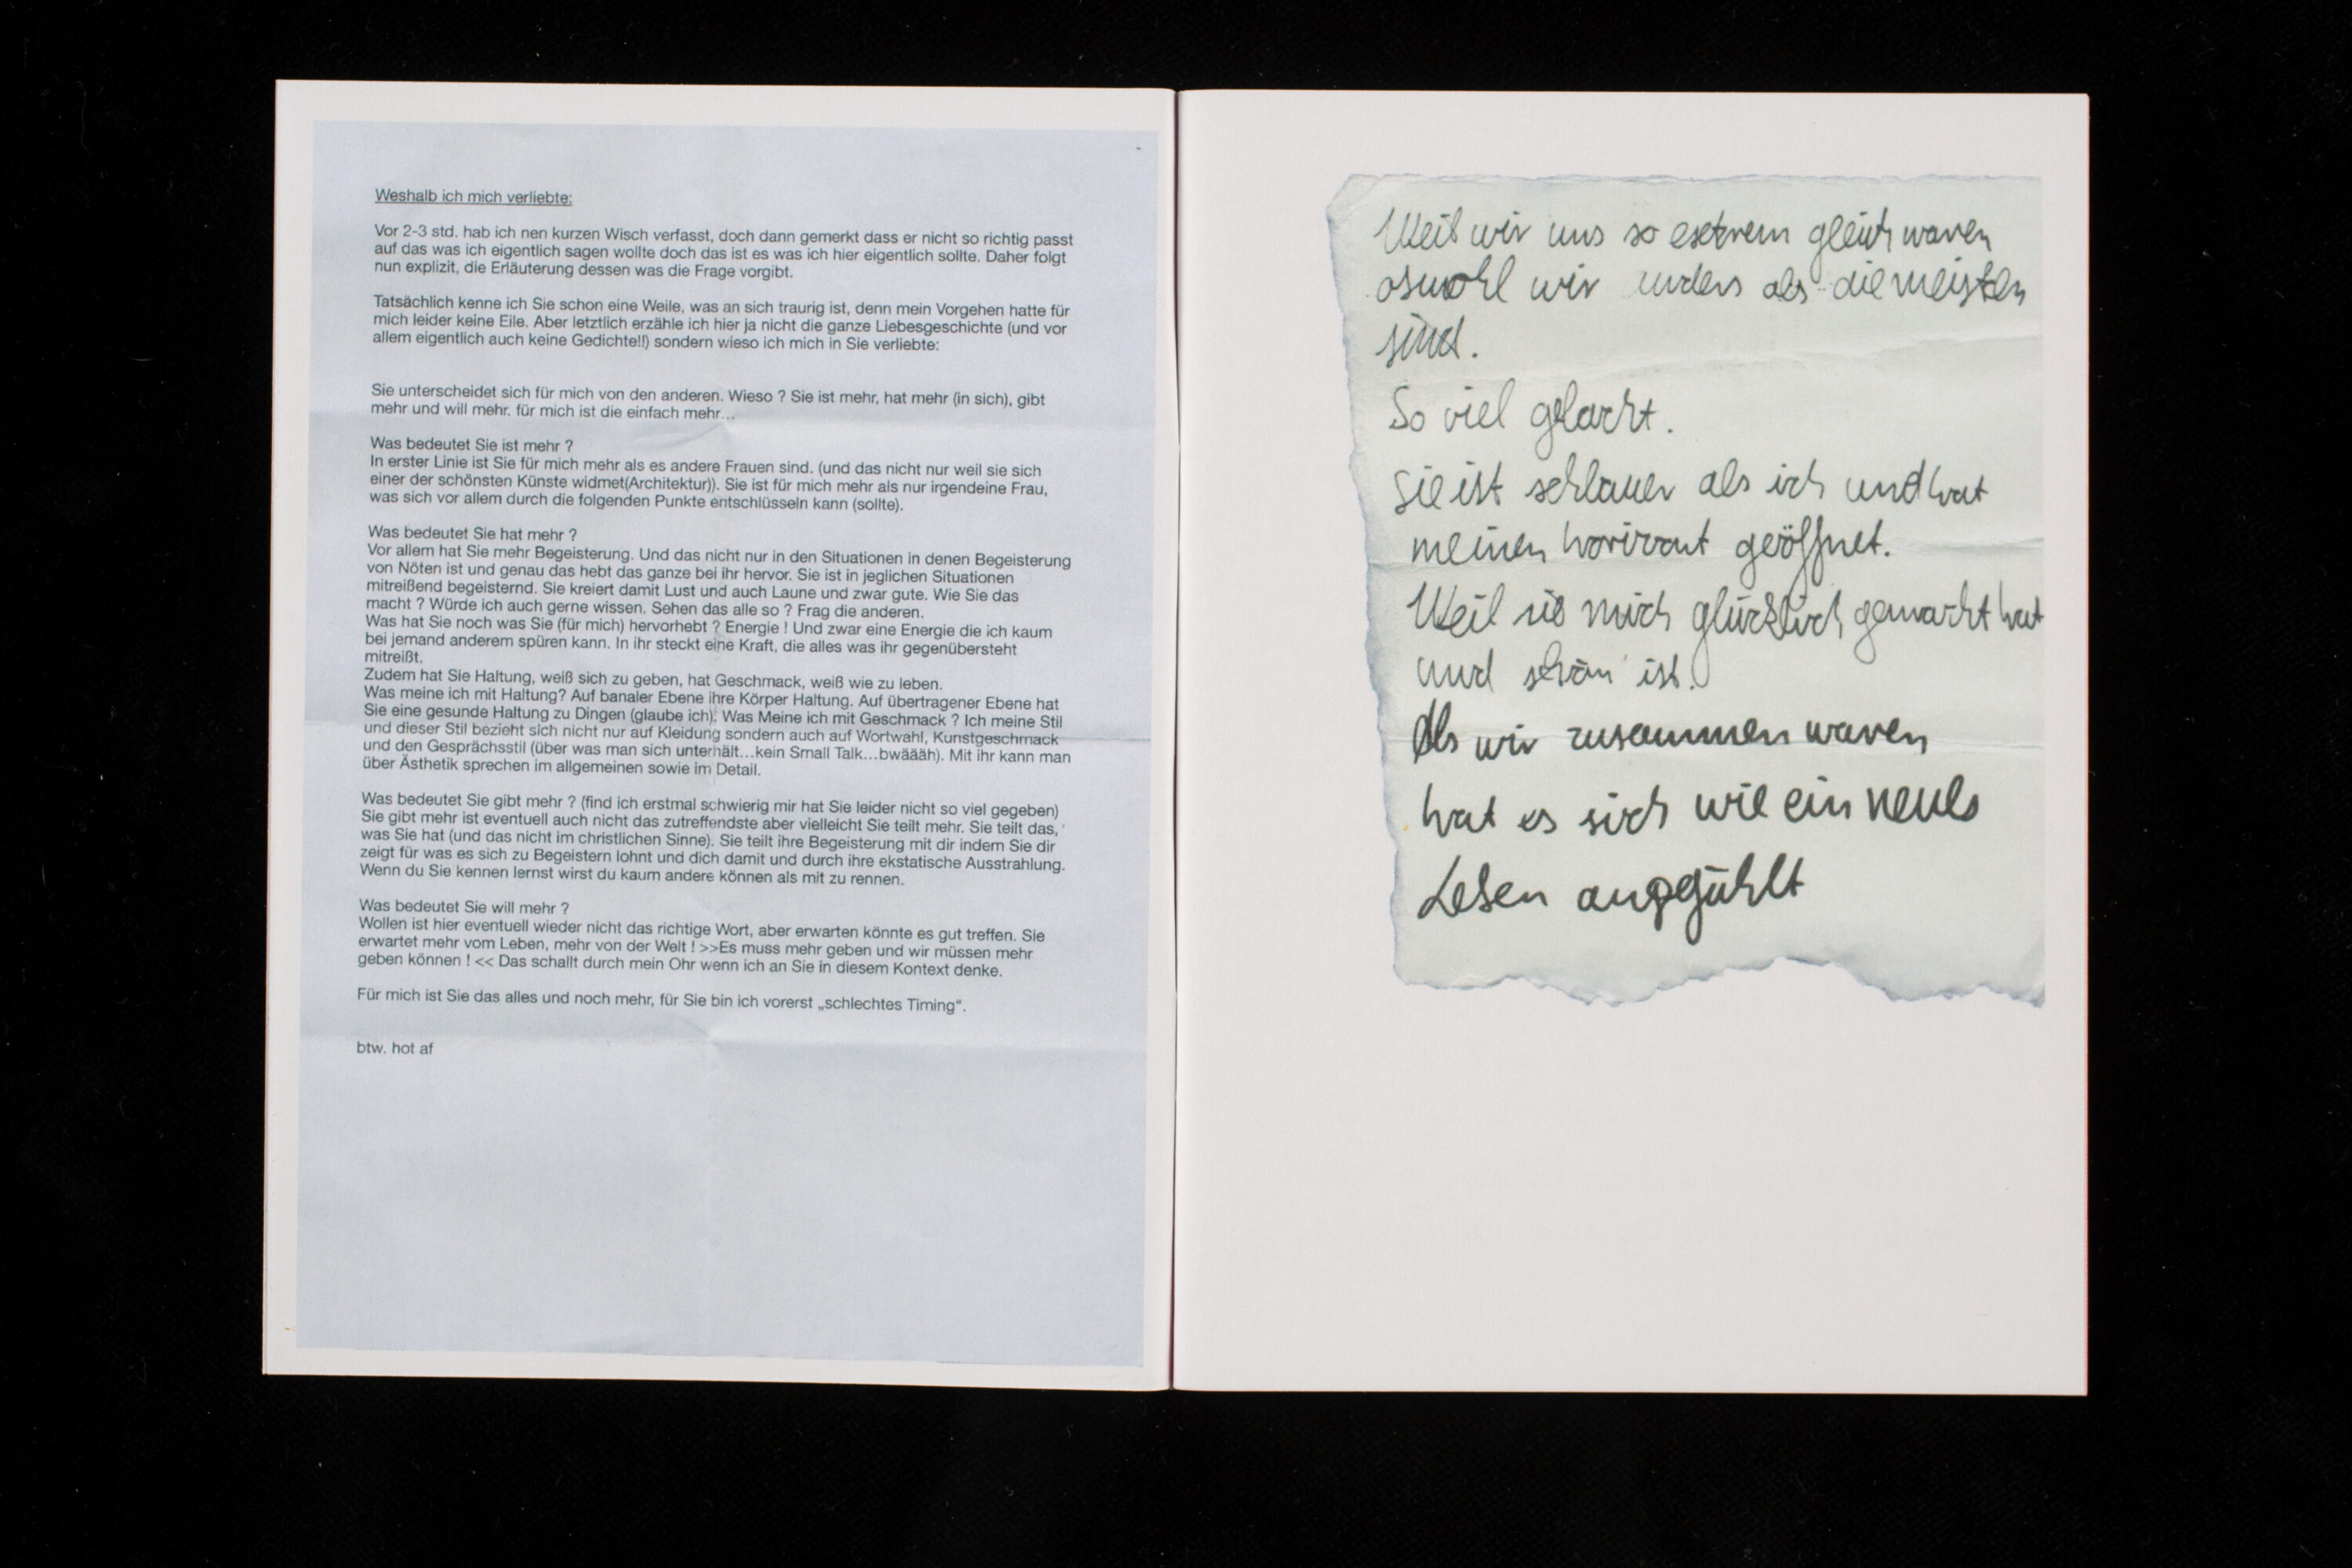 Weshalb ich mich verliebte:
Vor 2-3 std. hab ich nen kurzen Wisch verfasst, doch dann gemerkt dass er nicht so richtig passt
auf das was ich eigentlich sagen wollte doch das ist es was ich hier eigentlich sollte. Daher folgt
nun explizit, die Erläuterung dessen was die Frage vorgibt.
Tatsächlich kenne ich Sie schon eine Weile, was an sich traurig ist, denn mein Vorgehen hatte für
mich leider keine Eile. Aber letztlich erzähle ich hier ja nicht die ganze Liebesgeschichte (und vor
allem eigentlich auch keine Gedichte!!) sondern wieso ich mich in Sie verliebte:
Sie unterscheidet sich für mich von den anderen. Wieso ? Sie ist mehr, hat mehr (in sich), gibt
mehr und will mehr. für mich ist die einfach mehr…
Was bedeutet Sie ist mehr ?
In erster Linie ist Sie für mich mehr als es andere Frauen sind. (und das nicht nur weil sie sich
einer der schönsten Künste widmet(Architektur)). Sie ist für mich mehr als nur irgendeine Frau,
was sich vor allem durch die folgenden Punkte entschlüsseln kann (sollte).
Was bedeutet Sie hat mehr ?
Vor allem hat Sie mehr Begeisterung. Und das nicht nur in den Situationen in denen Begeisterung
von Nöten ist und genau das hebt das ganze bei ihr hervor. Sie ist in jeglichen Situationen
mitreißend begeisternd. Sie kreiert damit Lust und auch Laune und zwar gute. Wie Sie das
macht ? Würde ich auch gerne wissen. Sehen das alle so ? Frag die anderen.
Was hat Sie noch was Sie (für mich) hervorhebt ? Energie ! Und zwar eine Energie die ich kaum
bei jemand anderem spüren kann. In ihr steckt eine Kraft, die alles was ihr gegenübersteht
mitreißt.
Zudem hat Sie Haltung, weiß sich zu geben, hat Geschmack, weiß wie zu leben.
Was meine ich mit Haltung? Auf banaler Ebene ihre Körper Haltung. Auf übertragener Ebene hat
Sie eine gesunde Haltung zu Dingen (glaube ich). Was Meine ich mit Geschmack ? Ich meine Stil
und dieser Stil bezieht sich nicht nur auf Kleidung sondern auch auf Wortwahl, Kunstgeschmack
und den Gesprächsstil (über was man sich unterhält…kein Small Talk…bwäääh). Mit ihr kann man
über Ästhetik sprechen im allgemeinen sowie im Detail.
Was bedeutet Sie gibt mehr ? (find ich erstmal schwierig mir hat Sie leider nicht so viel gegeben)
Sie gibt mehr ist eventuell auch nicht das zutreffendste aber vielleicht Sie teilt mehr. Sie teilt das,
was Sie hat (und das nicht im christlichen Sinne). Sie teilt ihre Begeisterung mit dir indem Sie dir
zeigt für was es sich zu Begeistern lohnt und dich damit und durch ihre ekstatische Ausstrahlung.
Wenn du Sie kennen lernst wirst du kaum andere können als mit zu rennen.
Was bedeutet Sie will mehr ?
Wollen ist hier eventuell wieder nicht das richtige Wort, aber erwarten könnte es gut treffen. Sie
erwartet mehr vom Leben, mehr von der Welt ! >>Es muss mehr geben und wir müssen mehr
geben können ! << Das schallt durch mein Ohr wenn ich an Sie in diesem Kontext denke.
Für mich ist Sie das alles und noch mehr, für Sie bin ich vorerst „schlechtes Timing“.
btw. hot af
Weil wir uns so extrem gleich waren
obwohl wir anders als die meisten
sind.
So viel gelacht.
Sie ist schlauer als ich und hat
meinen horizont geöffnet.
Weil sie mich glücklich gemacht hat
und schön ist.
Als wir zusammen waren
hat es sich wie ein neues
Leben angefühlt